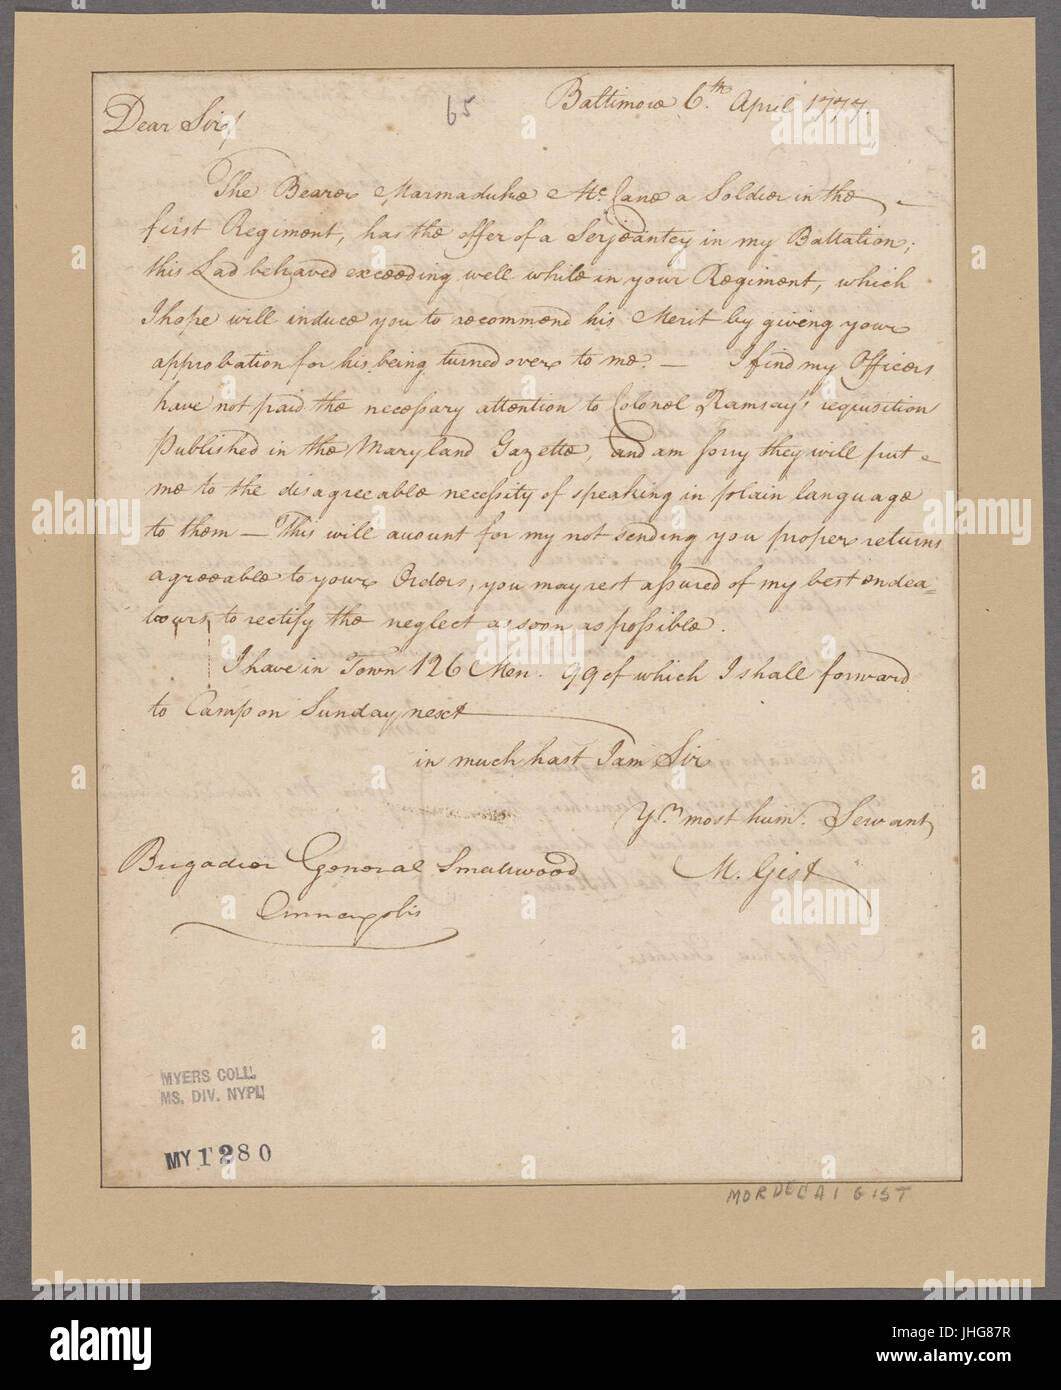 65
Baltimore 6.th April 1777.
Dear Sir,
The Bearer Marmaduke Mc. Cane a Soldier in the
first Regiment, has the offer of a Serjeantcy in my Battalion;
this Lad behaved exceeding well while in your Regiment, which
I hope will induce you to recommend his Merit by giving your
approbation for his being turned over to me. — I find my Officers
have not paid the necessary attention to Colonel Ramsay's requisition
Published in the Maryland Gazette, and am sorry they will put
me to the disagreeable necessity of speaking in plain language
to them — This will account for my not sending you proper returns
agreeable to your Orders, you may rest assured of my best endea=
vours, to rectify the neglect as soon as possible.
I have in Town 126 Men. 99 of which I shall forward
to Camp on Sunday next
in much hast I am Sir
Yr. most hum. Servant
M. Gist
Brigadier General Smallwood
Annapolis
MYERS COLL.
MS. DIV. NYPL
MY 1280
MORDECAI GIST
alamy stock photo
alamy
Image ID: JHG87R
www.alamy.com